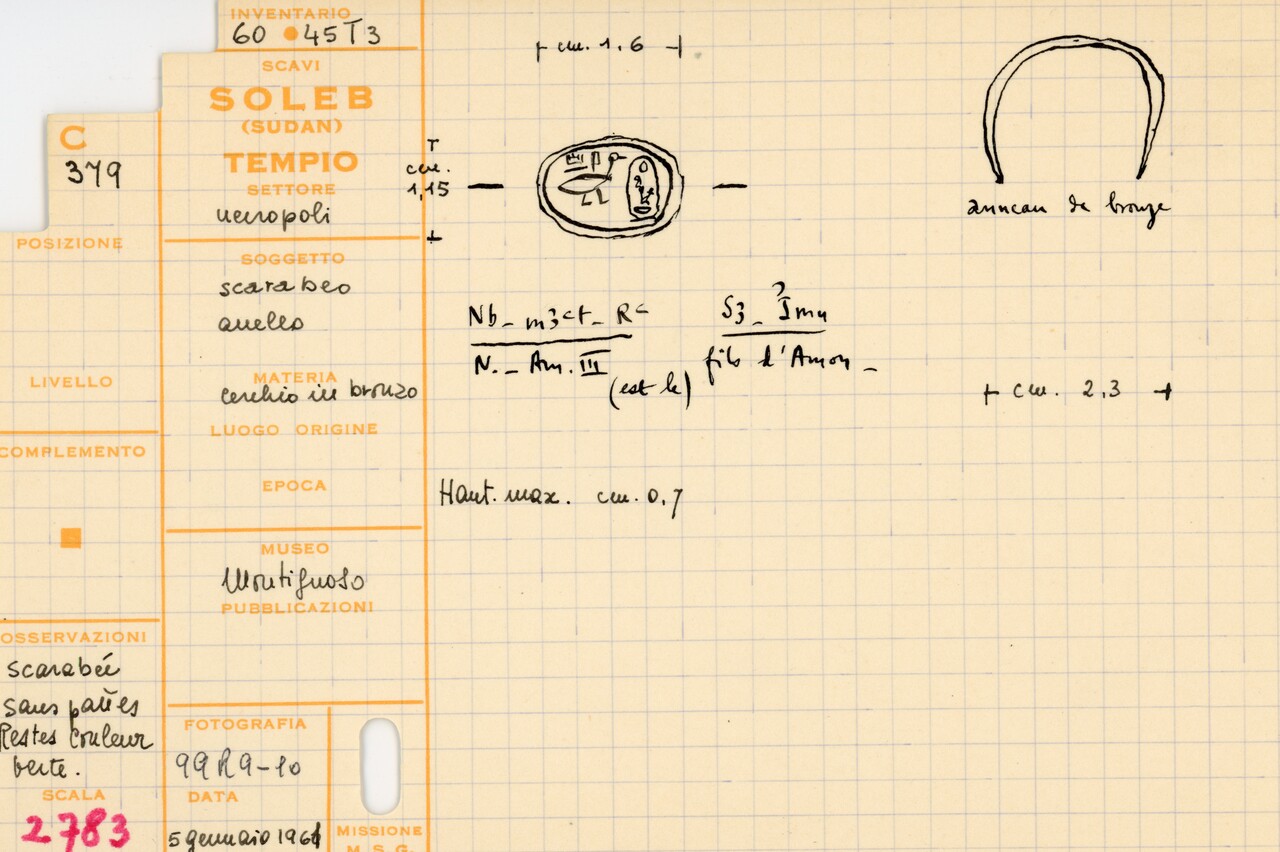 INVENTARIO
60 • 45T3
SCAVI
SOLEB
(SUDAN)
TEMPIO
SETTORE
necropoli
C
379
POSIZIONE
LIVELLO
COMPLEMENTO
OSSERVAZIONI
scarabée
sans pattes
Restes couleur
verte.
SCALA
2783
SOGGETTO
scarabeo
anello
MATERIA
cerchio in bronzo
LUOGO ORIGINE
EPOCA
MUSEO
Montignoso
PUBBLICAZIONI
FOTOGRAFIA
99R9-10
DATA
5 gennaio 1961
MISSIONE
M. S. G.
cm. 1,6
cm.
1,15
anneau de bronze
Nb_m3ct_Rc S3_Imn
N._Am.III (est le) fils d'Amon_
cm. 2,3
Haut. max. cm. 0,7